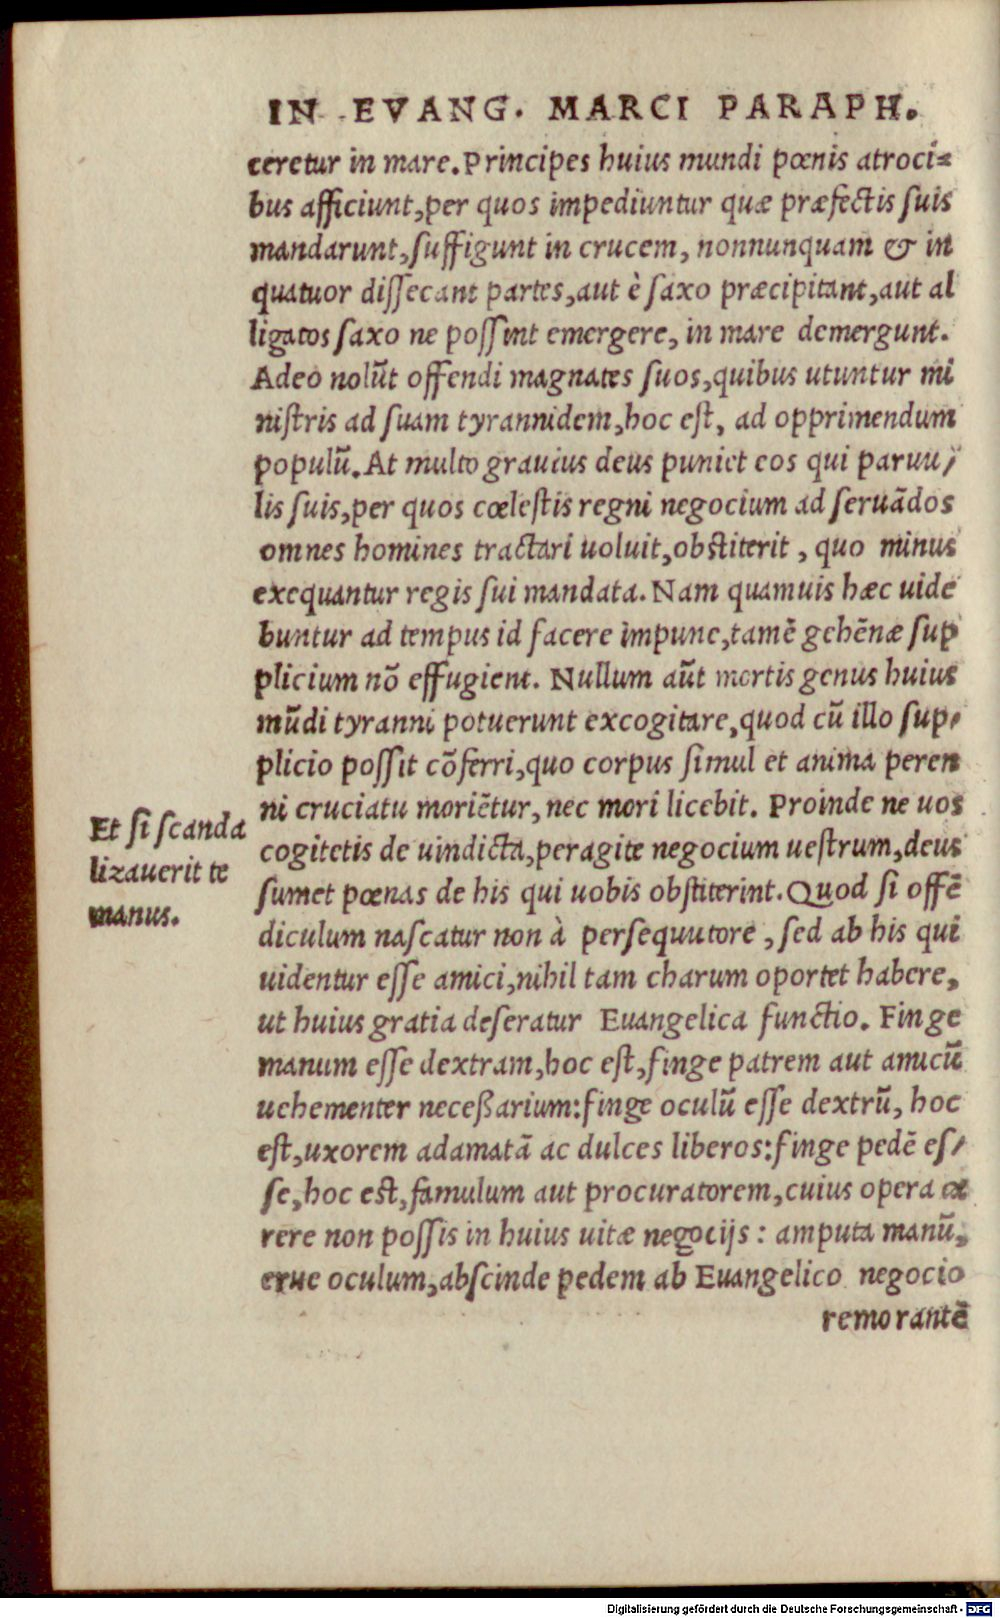 IN EVANG. MARCI PARAPH.
ceretur in mare. Principes huius mundi pœnis atroci=
bus afficiunt, per quos impediuntur quæ præfectis suis
mandarunt, suffigunt in crucem, nonnunquam & in
quatuor dissecant partes, aut è saxo præcipitant, aut al
ligatos saxo ne possint emergere, in mare demergunt.
Adeo nolūt offendi magnates suos, quibus utuntur mi
nistris ad suam tyrannidem, hoc est, ad opprimendum
populū. At multo grauius deus puniet eos qui paruu/
lis suis, per quos cœlestis regni negocium ad seruādos
omnes homines tractari uoluit, obstiterit, quo minus
exequantur regis sui mandata. Nam quamuis hæc uide
buntur ad tempus id facere impune, tamē gehēnæ sup
plicium nō effugient. Nullum aūt mortis genus huius
mūdi tyranni potuerunt excogitare, quod cū illo sup/
plicio possit cōferri, quo corpus simul et anima peren
ni cruciatu moriētur, nec mori licebit. Proinde ne uos
cogitetis de uindicta, peragite negocium uestrum, deus
sumet pœnas de his qui uobis obstiterint. Quod si offē
diculum nascatur non à persequutore, sed ab his qui
uidentur esse amici, nihil tam charum oportet habere,
ut huius gratia deseratur Euangelica functio. Finge
manum esse dextram, hoc est, finge patrem aut amicū
uehementer neceßarium: finge oculū esse dextrū, hoc
est, uxorem adamatā ac dulces liberos: finge pedē es/
se, hoc est, famulum aut procuratorem, cuius opera ca
rere non possis in huius uitæ negocijs: amputa manū,
erue oculum, abscinde pedem ab Euangelico negocio
remorantē
Et si scanda
lizauerit te
manus.
Digitalisierung gefördert durch die Deutsche Forschungsgemeinschaft - DFG